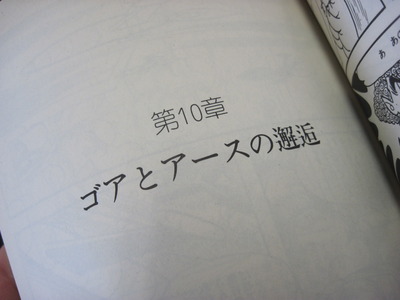 第10章
ゴアとアースの邂逅
あ あの